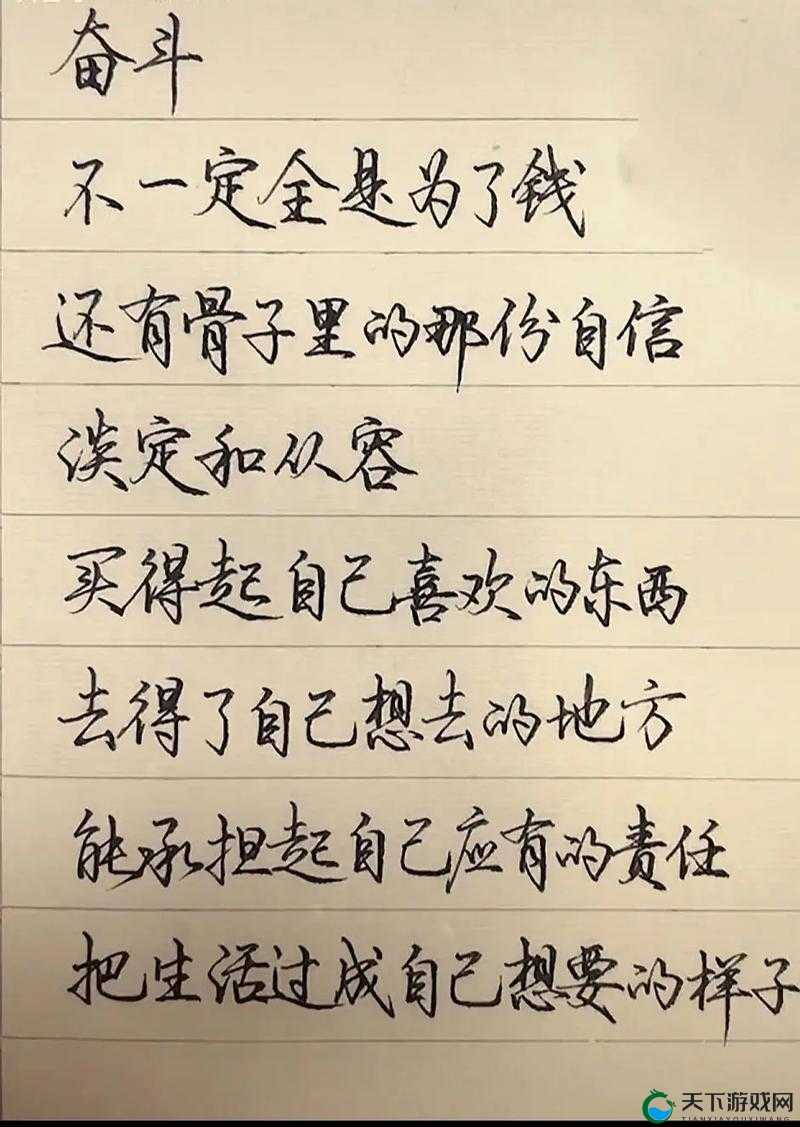 奋斗
不一定全是为了钱
还有骨子里的那份自信
淡定和从容
买得起自己喜欢的东西
去得了自己想去的地方
能承担起自己应有的责任
把生活过成自己想要的样子
天下游戏网
TIANXIAYOUXIWANG